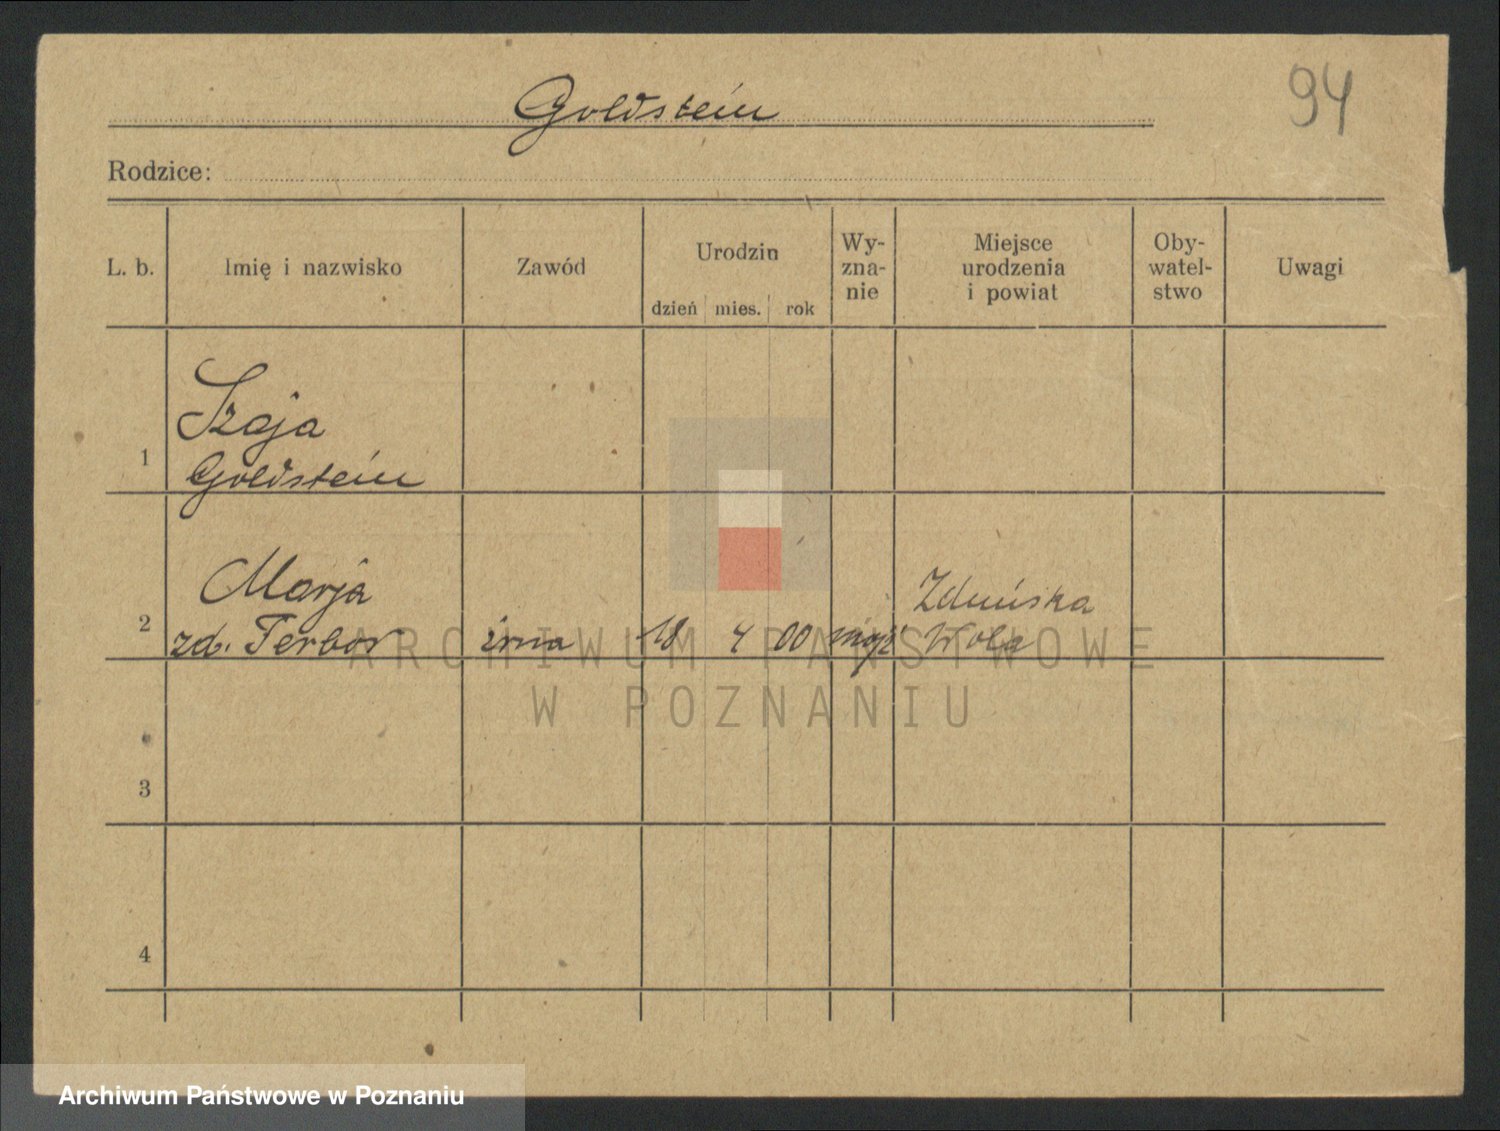 94
Goldstein
Rodzice:
L. b.
Imię i nazwisko
Zawód
Urodzin
dzień mies. rok
Wy-
zna-
nie
Miejsce
urodzenia
i powiat
Oby-
watel-
stwo
Uwagi
1
Szaja
Goldstein
2
Marja
zd. Terbor
żona
18 4 00
mojż
Zduńska
Wola
3
4
ARCHIWUM PAŃSTWOWE
W POZNANIU
Archiwum Państwowe w Poznaniu